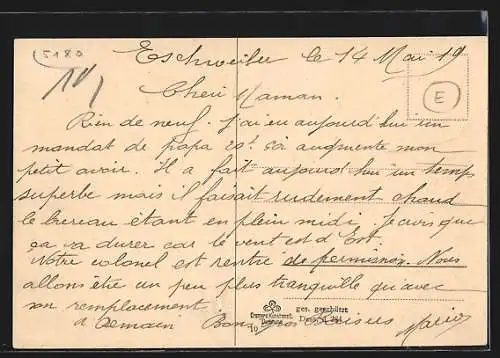 5180
Eschweiler le 14 Mai 19
E
Cheri Maman.
Rien de neuf. J'ai eu aujourd'hui un
mandat de papa augmente mon
petit avoir. Il a fait aujourd'hui un temps
superbe mais il faisait rudement chaud
le bureau étant en plein midi. Je crois que
ça va durer car le vent est d'Est.
Notre colonel est rentré de permission. Nous
allons être un peu plus tranquille qu'avec
son remplacement.
a demain Bons Baisers Mario
ges. geschützt
Dess.